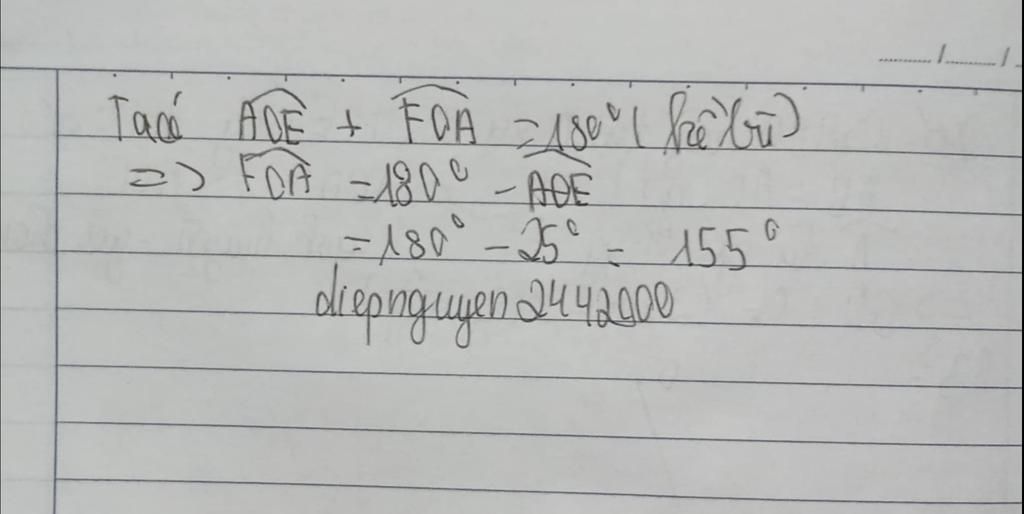 Ta có $\widehat{AOE} + \widehat{FOA} = 180^0$ (kề bù)
=> $\widehat{FOA} = 180^0 - \widehat{AOE}$
$= 180^0 - 25^0 = 155^0$
diepnguyen2442000